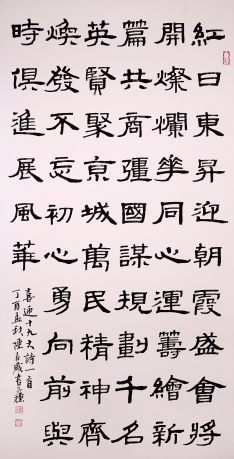 紅日東昇迎朝霞盛會將
開燦爛華同心運籌繪新
篇共商彊國謀規劃千名
英賢聚京城萬民精神齊
煥發不忘初心勇向前與
時俱進展風華
喜迎十九大詩一首
丁酉孟秋陳